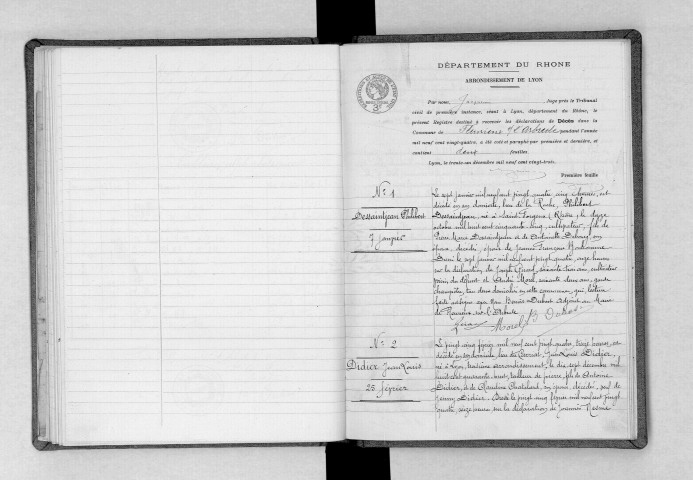 DÉPARTEMENT DU RHONE
ARRONDISSEMENT DE LYON
Par nous, Juge près le Tribunal
civil de première instance, séant à Lyon, département du Rhône, le
présent Registre destiné à recevoir les déclarations de Décès dans la
Commune de Fleurieux s/ l'Arbresle pendant l'année
mil neuf cent vingt-quatre, a été coté et paraphé par première et dernière, et
contient deux feuilles.
Lyon, le trente-un décembre mil neuf cent vingt-trois.
Première feuille
N° 1
Dessaintjean Philibert
7 janvier
Le sept janvier mil neuf cent vingt quatre, cinq heures, est
décédé en son domicile, lieu de la Roche, Philibert
Dessaintjean, né à Saint Forgeux (Rhône), le douze
octobre mil huit cent cinquante cinq, cultivateur, fils de
Pierre Marie Dessaintjean et de Antoinette
époux décédés, époux de Jeanne Françoise
Dressé le sept janvier mil neuf cent vingt quatre, onze heures
sur la déclaration de Joseph, soixante ans, cultivateur
voisin du défunt et André Morel, soixante deux ans, garde
champêtre, tous deux domiciliés en cette commune, qui, lecture
faite ont signé avec Nous Benoit Dubost Adjoint au Maire
de Fleurieux sur l'Arbresle
Morel B Dubost
N° 2
Didier Jean Louis
25 février
Le vingt cinq février mil neuf cent vingt quatre, treize heures, est
décédé en son domicile, lieu du, Jean Louis Didier,
né à Lyon, troisième arrondissement, le dix sept décembre mil
huit cent quarante huit, tailleur de pierre, fils de Antoine
Didier, et de Claudine, époux décédés, veuf de
Didier. Dressé le vingt cinq février mil neuf cent vingt
quatre, seize heures sur la déclaration de Joannès